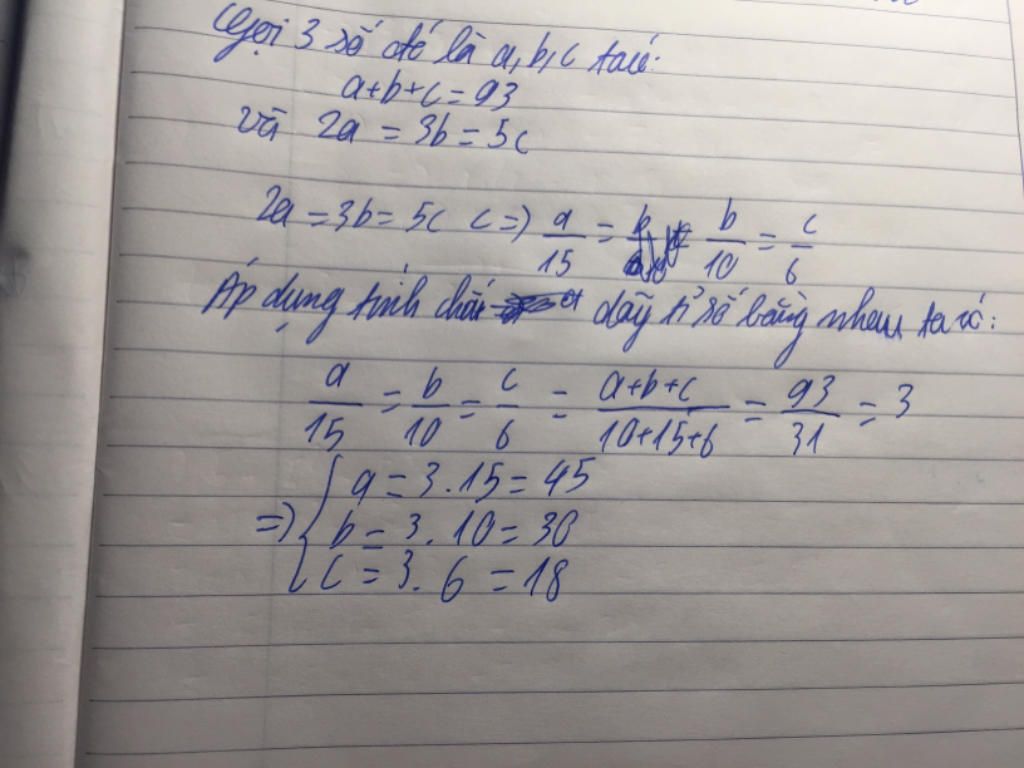 Gọi 3 số đó là a, b, c ta có:
a+b+c = 93
và 2a = 3b = 5c
2a = 3b = 5c (=) a/15 = b/10 = c/6
Áp dụng tính chất dãy tỉ số bằng nhau ta có:
a/15 = b/10 = c/6 = a+b+c/10+15+6 = 93/31 = 3
=> { a = 3.15 = 45
b = 3.10 = 30
c = 3.6 = 18